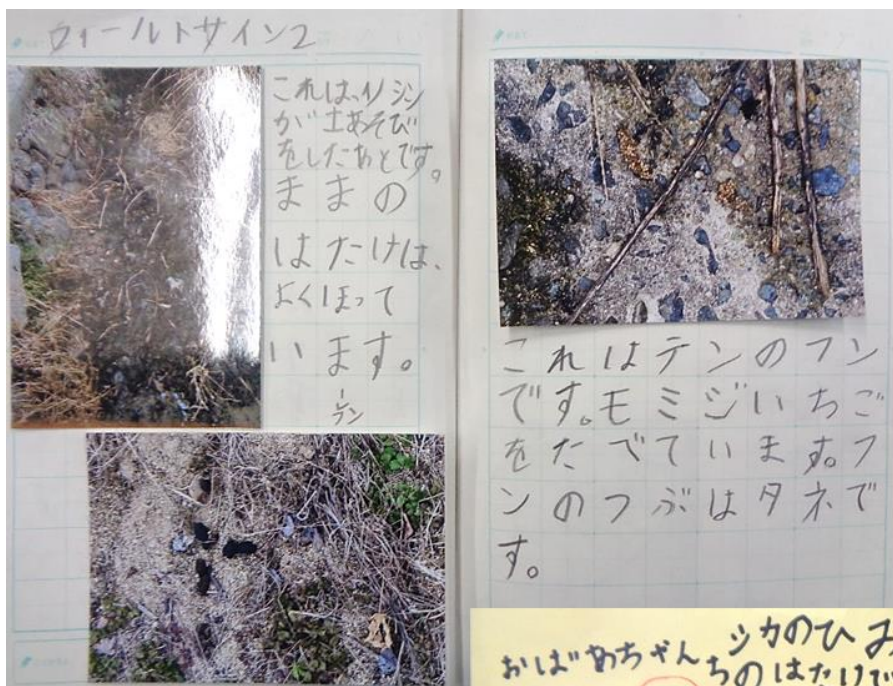 ウィールトサイン2
これは、イノシシ
が土あそび
をしたあとです。
ままの
はたけは、
よくほって
います。
フン
これはテンのフン
です。モミジいちご
をたべています。フ
ンのつぶはタネで
す。
シカのひみ
おばあちゃん
ちのはたけで